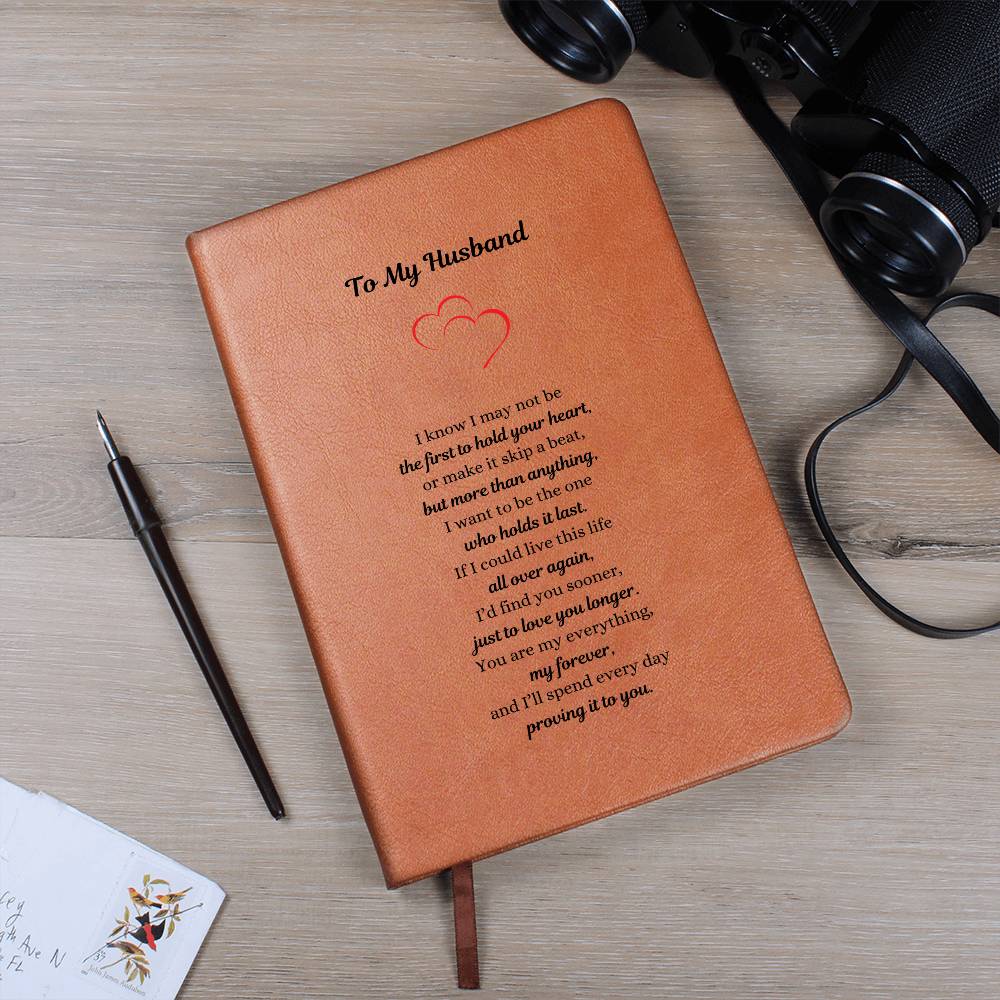 To My Husband
I know I may not be
the first to hold your heart,
or make it skip a beat,
but more than anything,
I want to be the one
who holds it last.
If I could live this life
all over again,
I'd find you sooner,
just to love you longer.
You are my everything,
my forever,
and I'll spend every day
proving it to you.
Ave N
FL
37
John James Audubon